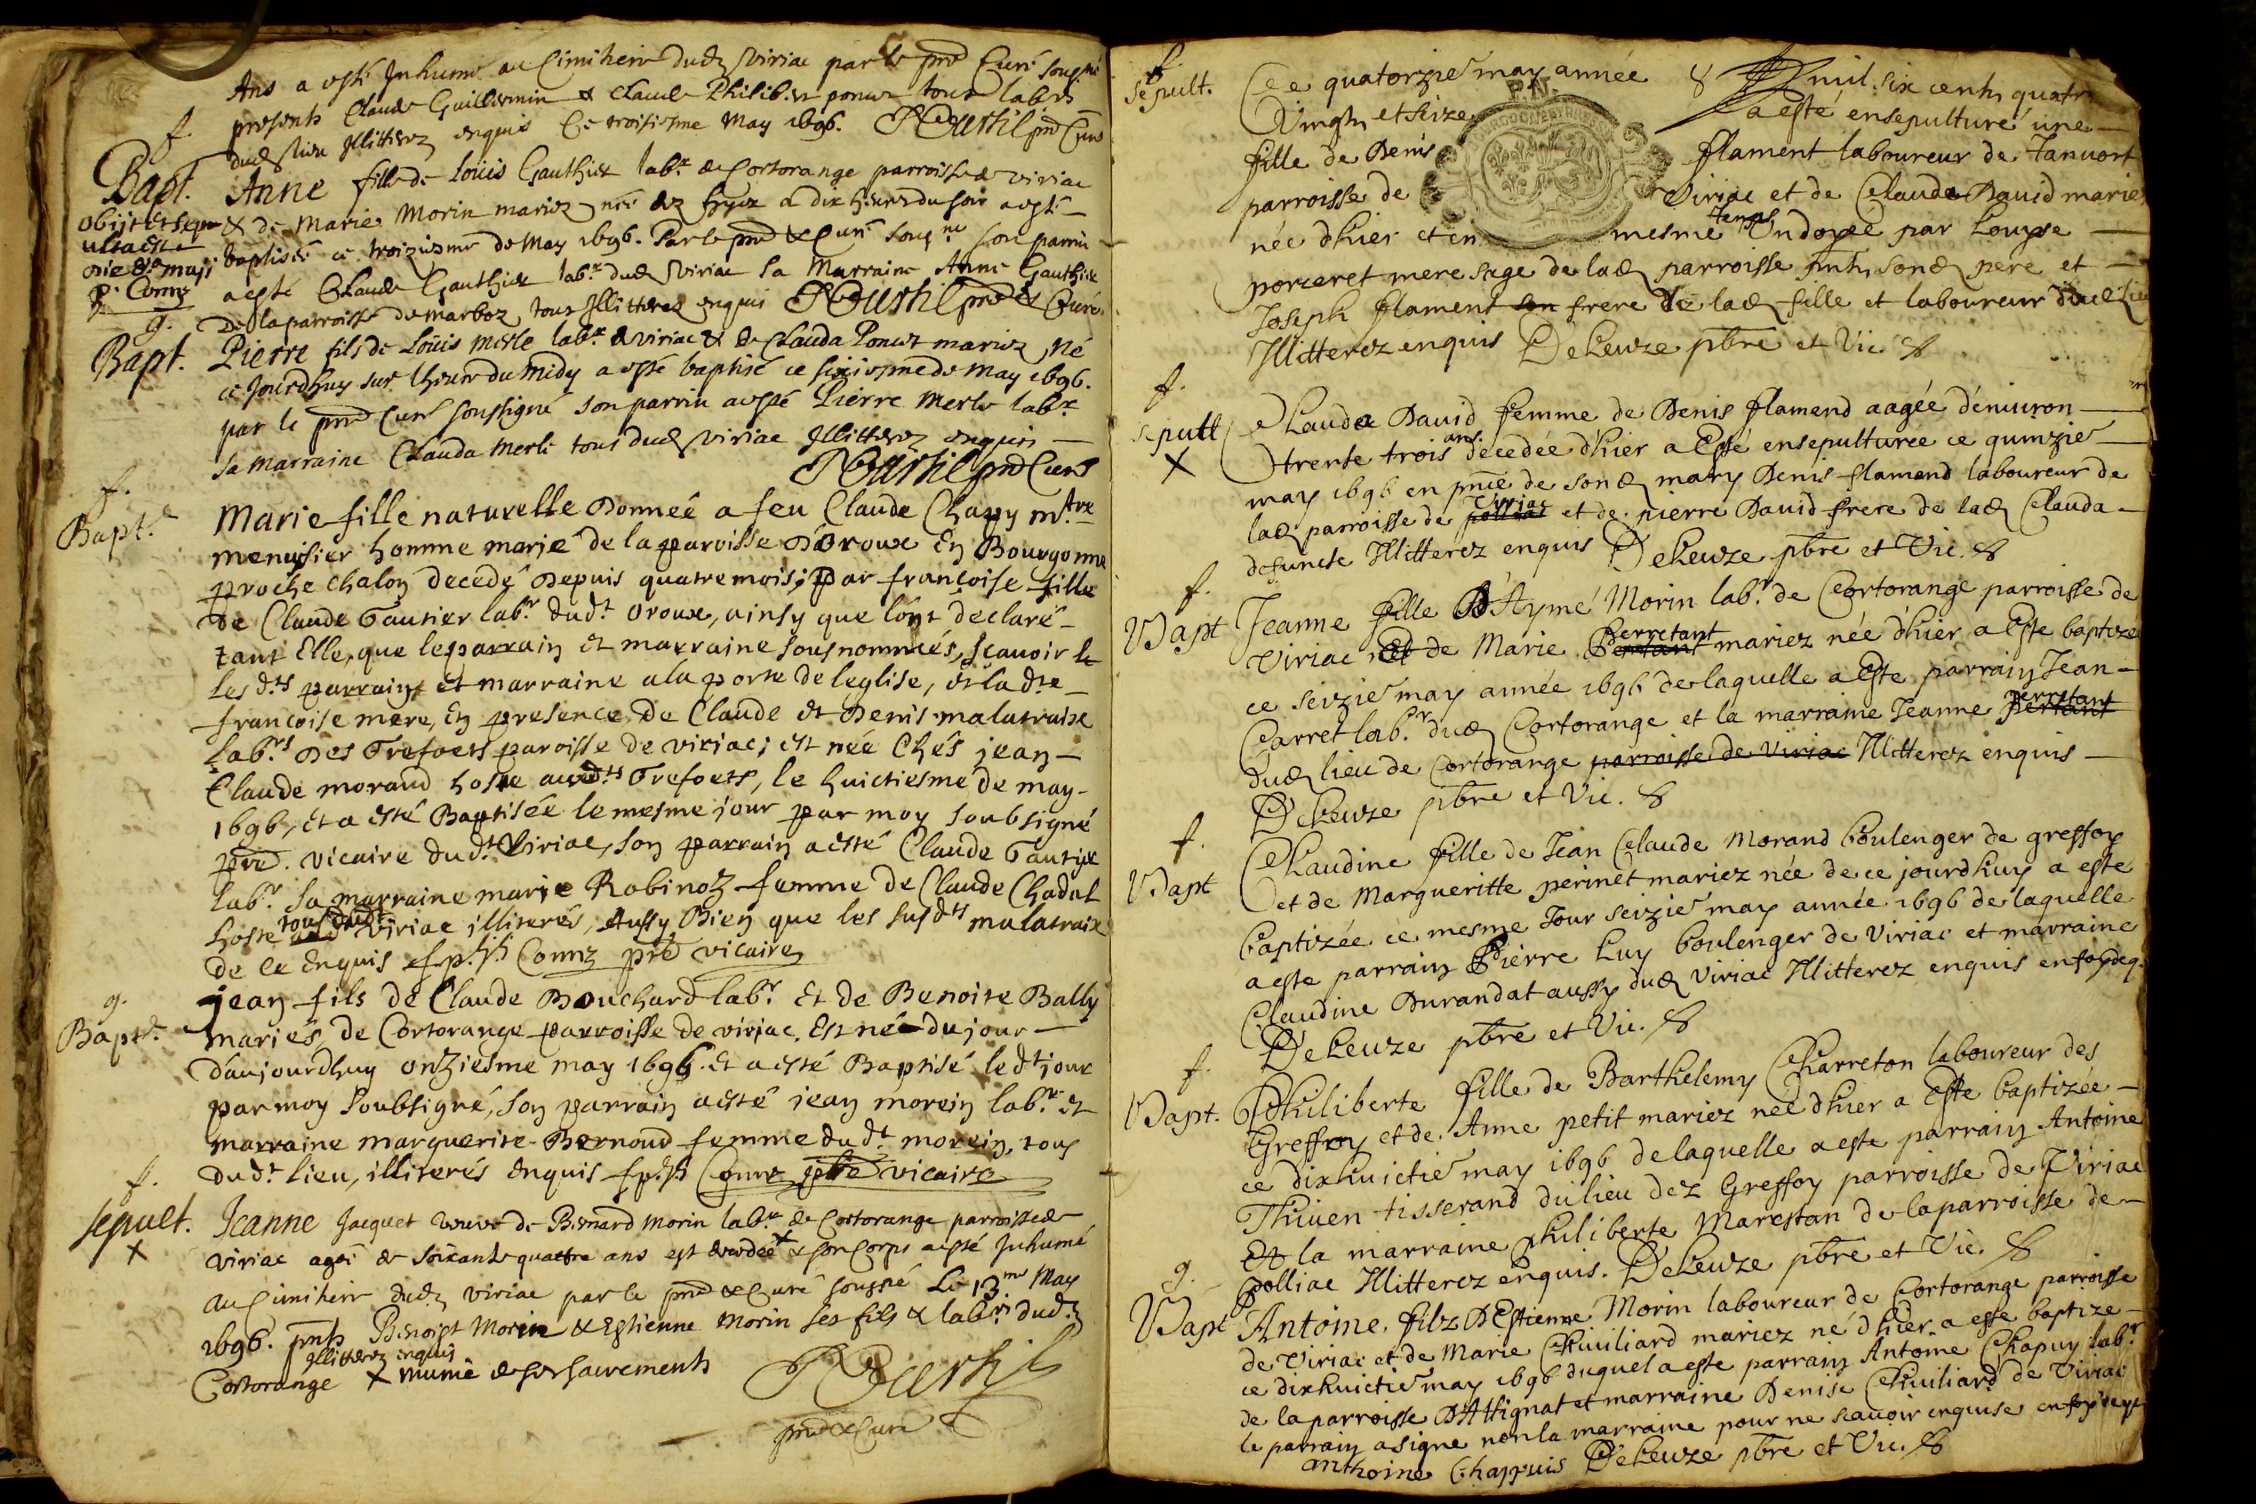 Ans a esté Inhumé au Cimitiere dud Viriac par le Curé sousné
presents Claude Guillermin & Claude Philibert poncet tous labrs
f.
dud lieu Illitterez enquis Ce troisieme May 1696.
Bapt. Anne fille de Loüis Gauthier labr de Cortorange parroisse de viriac
obijt et sepulta est & de Marie Morin mariez née à dix heures du soir a esté
die maji baptisée ce troizieme de May 1696. Par le Curé sousné son parrin
a esté Claude Gauthier labr dud Viriac sa Marraine Anne Gauthier
g.
De la parroisse de marboz tous Illitterez enquis Curé
Bapt. Pierre fils de Loüis merle labr de viriac & de Clauda Poncet mariez, Né
ce Jourdhuy sur lheure du midy a esté baptisé ce sixiesme de May 1696.
par le Curé soussigné son parrin a esté Pierre Merle labr
sa Marraine Clauda Merle tous dud Viriac Illitterez enquis
Curé
f.
Bapt.e Marie fille naturelle donneé a feu Claude Chapy mtre
menuisier homme marié de la paroisse d'Oroux En Bourgonne
proche chalon decedé depuis quatre mois; Par françoise fille
de Claude Gautier labr dudt oroux, ainsy que lont declaré
tant Elle, que les parrain et marraine sous nommés, scavoir le
les dts parrain et marraine a la porte de leglise, et la dte
francoise mere, En presence de Claude et Denis malatraix
labrs des Trefoets paroisse de viriac; est née Chés jean
Claude morand hoste auxdts Trefoets, le huictiesme de may
1696, et a esté Baptisée le mesme jour par moy soubsigné
pre. vicaire dudt Viriac, son parrain a esté Claude Gautier
labr. sa marraine marie Robinoz femme de Claude Chadal
hoste tous dudt Viriac illiterés, Aussy Bien que les susdts malatraix
de ce Enquis Conuz pre vicaire
g.
Bapte. jean fils de Claude Bouchard labr Et de Benoite Bally
mariés, de Cortorange parroisse de viriac. Est né du jour
d'aujourdhuy onziesme may 1696. Et a esté Baptisé le dt jour
par moy soubsigné, son parrain a esté jean morein labr. et
marraine marguerite Bernoud femme dudt morein, tous
dudt lieu, illiterés enquis Conuz pbre vicaire
f.
sepult. Jeanne Jacquet veuve de Bernard Morin labr de Cortorange parroisse de
X viriac ageé de soixante quattre ans est decedée X & son Corps a esté Inhumé
au Cimitiere dud viriac par le & Curé soussné Le 13me May
1696. pnts Benoist Morin & Estienne Morin ses fils & labrs dud
Illitterez enquis
Cortorange X munie de ses sacrements
& Curé
f.
sepult. Ce quatorzie may année 8 mil six cents quatre
Vingts et seize a esté ensepulture une
fille de Denis flament laboureur de Tanuort
parroisse de Viriac et de Claude Dauid mariez
née dhier et en mesme temps Ondoyeé par Louyse
porceret mere sage de lad parroisse pnts sond pere et
Joseph flament son frere de lad fille et laboureur dud lieu
Illitterez enquis DeLeuze pbre et Vic.
f.
sepult Claudea Dauid femme de Denis flamend aagée denuiron
X trente trois ans decedée d'hier a Esté ensepulturée ce quinzie
may 1696 en pnce de sond mary Denis flamend laboureur de
lad parroisse de polliat Viriac et de pierre Dauid frere de lad Clauda
defuncte Illitterez enquis DeLeuze pbre et Vic.
f.
Bapt Jeanne fille D'Aymé Morin labr. de Cortorange parroisse de
Viriac et de Marie Pertant Perretant mariez née d'hier a Esté baptizé
ce seizie may année 1696 de laquelle a este parrain Jean
Carret labr. dud Cortorange et la marraine Jeanne pertant perretant
dud lieu de Cortorange parroisse de Viriac Illitterez enquis
DeLeuze pbre et Vic.
f.
Bapt Claudine fille de Jean Claude Morand boulenger de greffoy
et de Margueritte perinet mariez née de ce jourdhuy a este
baptizée ce mesme Jour seizie may année 1696 de laquelle
a este parrain Pierre Luy boulenger de Viriac et marraine
Claudine Durandat aussy dud Viriac Illitterez enquis en foy de q.
DeLeuze pbre et Vic.
f.
Bapt. Philiberte fille de Barthelemy Charreton laboureur des
Greffoy et de Anne petit mariez née dhier a Este baptizée
ce dixhuictie may 1696 de laquelle a este parrain Antoine
Thiuen tisserand du lieu dez Greffoy parroisse de Viriac
Et la marraine philiberte Marestan de la parroisse de
polliac Illitterez enquis. DeLeuze pbre et Vic.
g.
Bapt Antoine filz D'Estienne Morin laboureur de Cortorange parroisse
de Viriac et de Marie Chiuiliard mariez né d'hier a esté baptize
ce dixhuictie may 1696 duquel a este parrain Antoine Chapuy labr
de la parroisse D'Attignat et marraine Denise Chiuiliard de Viriac
le parrain a signe non la marraine pour ne scauoir enquise en foy
anthoine Chappuis DeLeuze pbre et Vic.